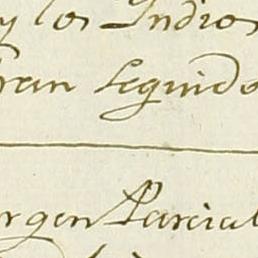 y los Indios
ran Seguido
rgen Parcial